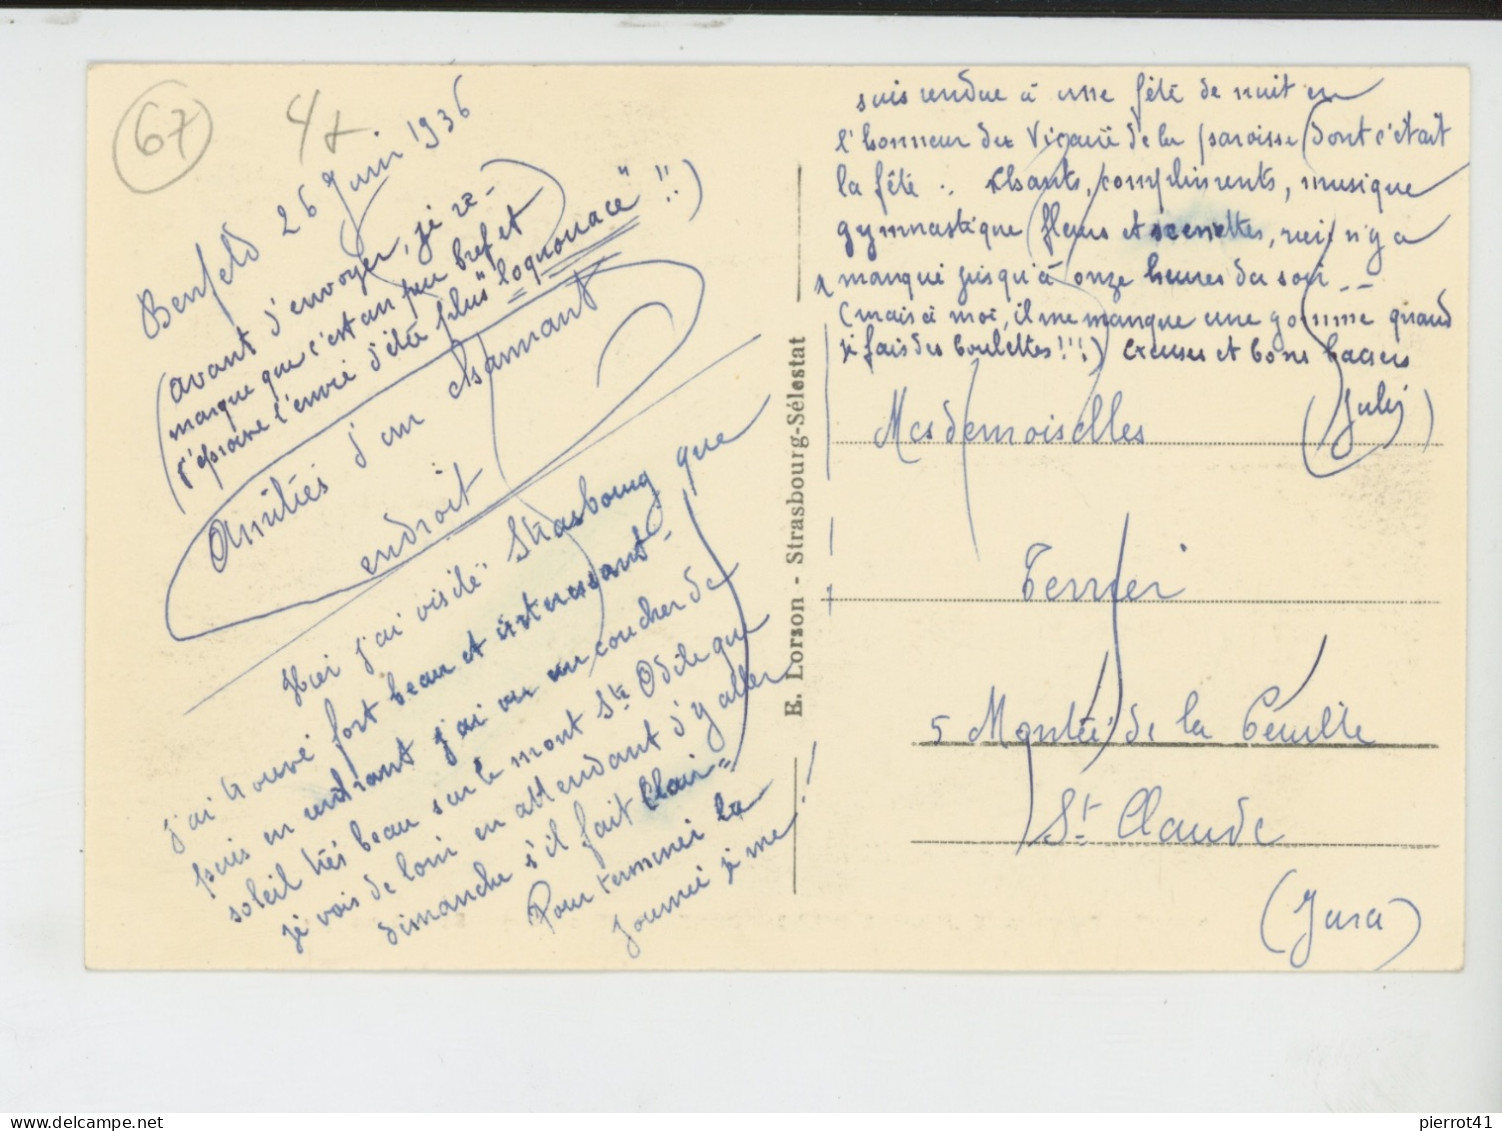 67
4x
Benfeld 26 Juin 1936
(avant d'envoyer, je re-
marque que c'est un peu bref et
j'éprouve l'envie d'être plus "loquouace" !!)
Amitiés d'un charmant
endroit
Hier j'ai visité Strasbourg que
j'ai trouvé fort beau et intéressant -
puis en rentrant j'ai vu un coucher de
soleil très beau sur le mont Ste Odile que
je vois de loin en attendant d'y aller
dimanche s'il fait clair =
Pour terminer la
journée je me
suis rendue à une fête de nuit en
l'honneur du Vicaire de la paroisse dont c'était
la fête .. Chants, compliments, musique
gymnastique fleurs et scenettes, rien n'y a
manqué jusqu'à onze heures du soir --
(mais à moi, il me manque une gomme quand
je fais des boulettes!!!) Excuses et bons baisers
(July)
Mesdemoiselles
Terrier
5 Montée de la
St Claude
(Jura)
E. Lorson - Strasbourg-Sélestat
pierrot41